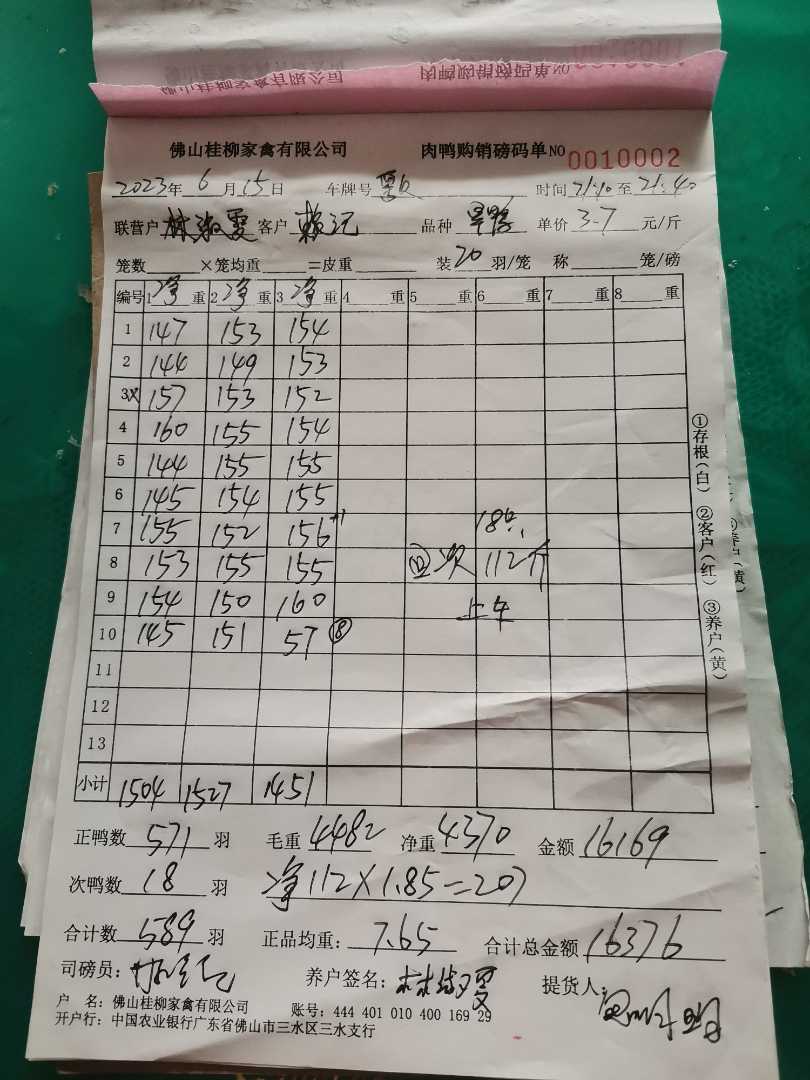 佛山桂柳家禽有限公司 肉鸭购销磅码单NO 0010002
2023年 6 月 15 日 车牌号 时间 21:10 至 21:40
联营户 林淑雯 客户 赖记 品种 单价 3.7 元/斤
笼数 ×笼均重 =皮重 装 20 羽/笼 称 笼/磅
编号 1 净 重 2 净 重 3 净 重 4 重 5 重 6 重 7 重 8 重
1 147 153 154
2 144 149 153
3 157 153 152
4 160 155 154
5 144 155 155
6 145 154 155
7 155 152 156 +1
8 153 155 155
9 154 150 160
10 145 151 57 ⑧
11
12
13
18只
次 112斤
上车
小计 1504 1527 1451
正鸭数 571 羽 毛重 4482 净重 4370 金额 16169
次鸭数 18 羽 净112×1.85=207
合计数 589 羽 正品均重: 7.65 合计总金额 16376
司磅员: 养户签名: 林淑雯 提货人:
户 名: 佛山桂柳家禽有限公司 账号: 444 401 010 400 169 29
开户行: 中国农业银行广东省佛山市三水区三水支行
①存根(白) ②客户(红) ③养户(黄)